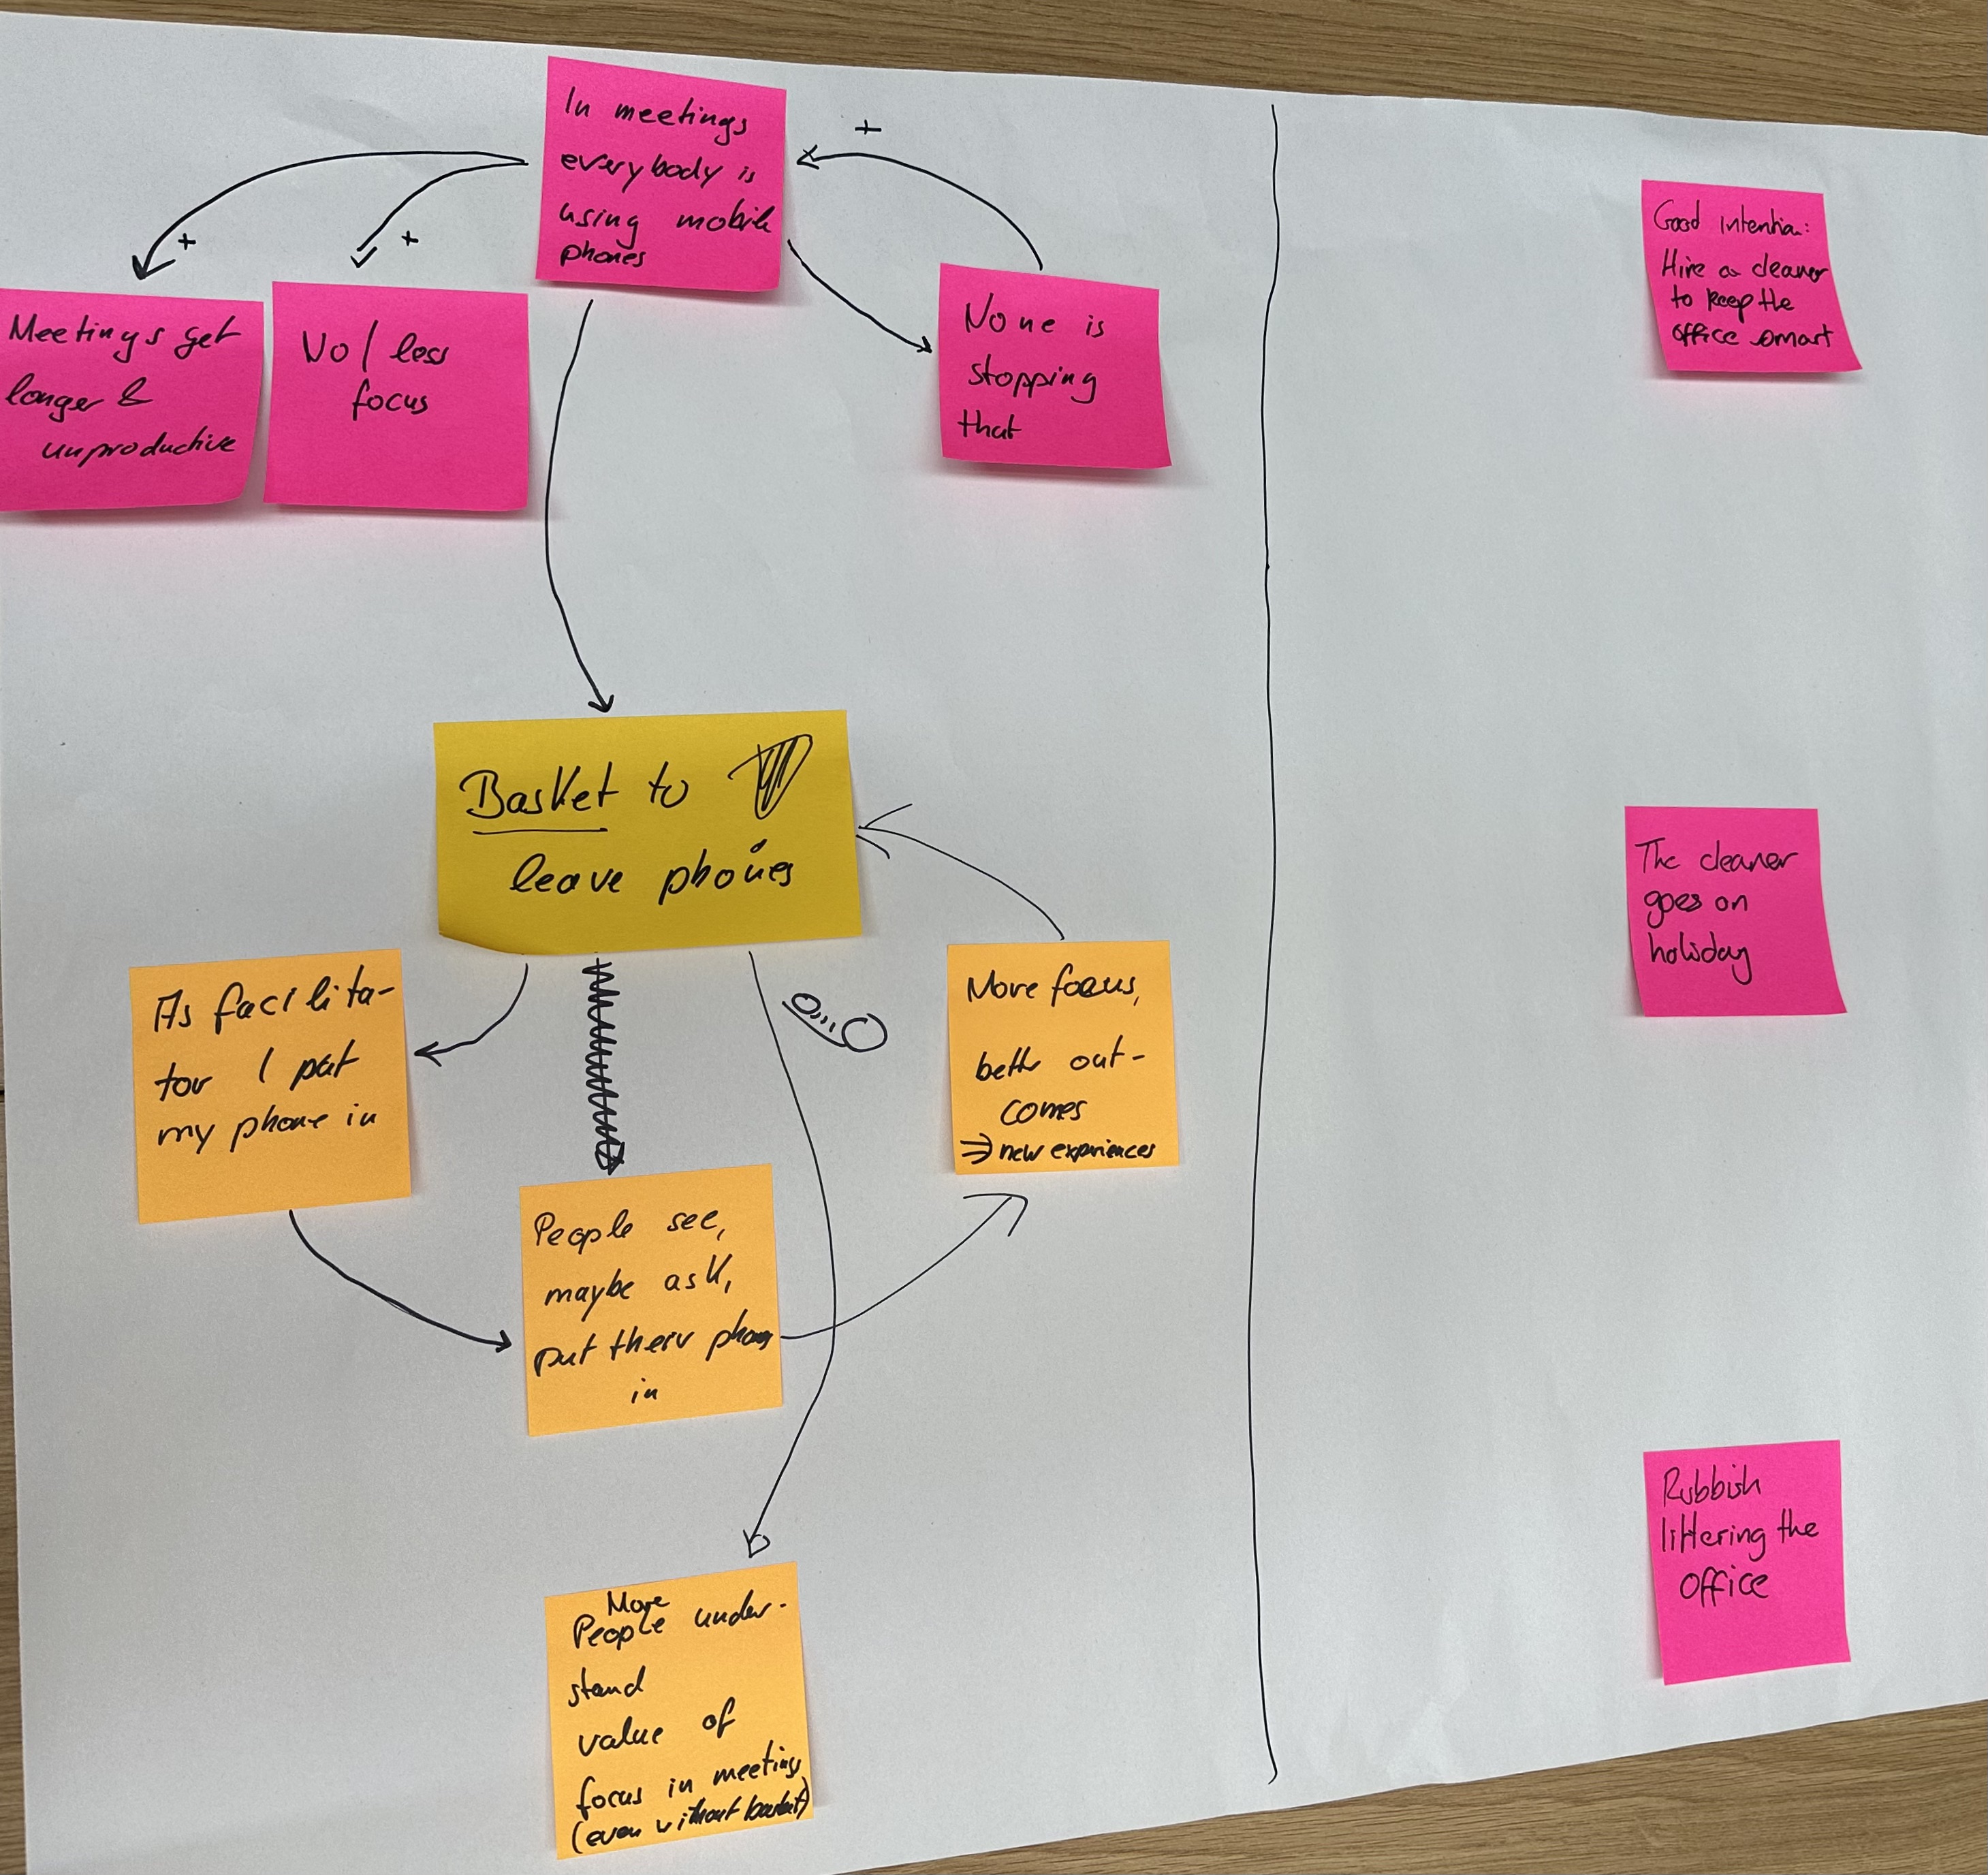 In meetings
everybody is
using mobile
phones
+
+
+
Meetings get
longer &
unproductive
No / less
focus
None is
stopping
that
Basket to
leave phones
As facilita-
tor I put
my phone in
People see,
maybe ask,
put their phones
in
More focus,
better out-
comes
⇒ new experiences
More
People under-
stand
value of
focus in meetings
(even without basket)
Good intention:
Hire a cleaner
to keep the
office smart
The cleaner
goes on
holiday
Rubbish
littering the
office